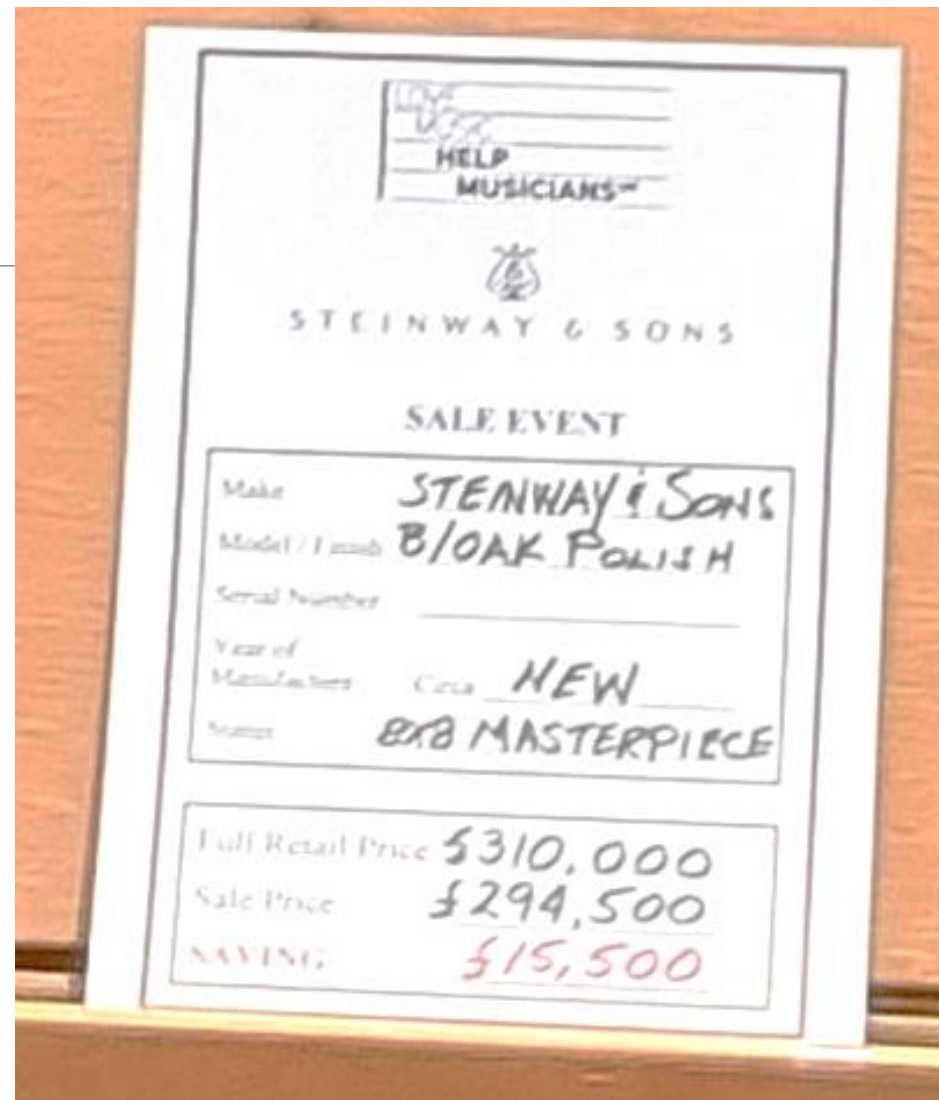 LOVE
MUSIC
HELP
MUSICIANS UK
STEINWAY & SONS
SALE EVENT
Make STENWAY & SONS
Model / Finish B/OAK POLISH
Serial Number
Year of
Manufacture Circa NEW
8X8 MASTERPIECE
Full Retail Price £310,000
Sale Price £294,500
SAVING £15,500